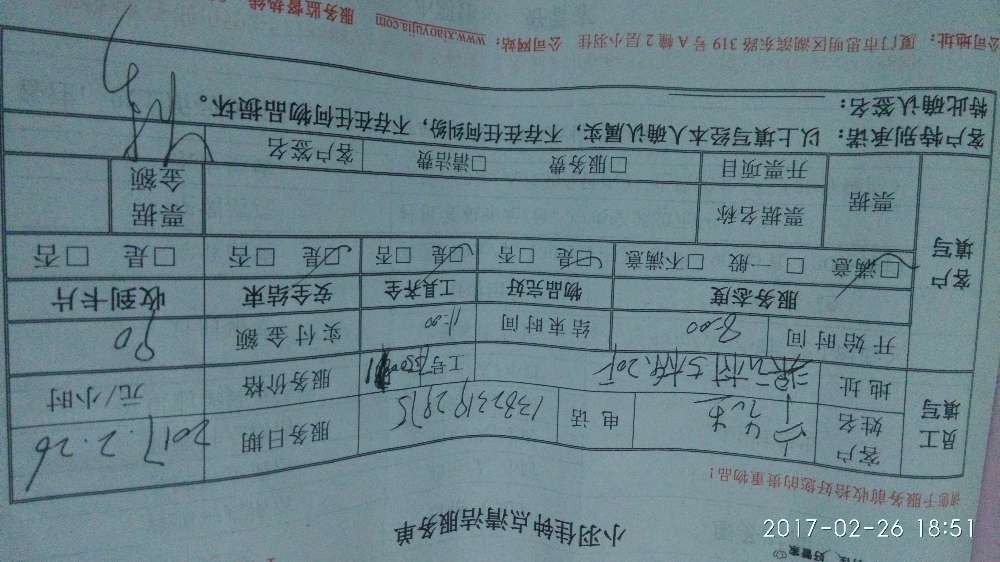 小羽佳钟点清洁服务单
请您于服务前收拾好您的贵重物品！
员工填写 客户姓名 电话 服务日期 2017.2.26
地址 工号 服务价格 元/小时
开始时间 8:00 结束时间 11:00 实付金额 90
客户填写 服务态度 物品完好 工具齐全 安全结束 收到卡片
□满意 □一般 □不满意 □是 □否 □是 □否 □是 □否 □是 □否
票据 票据名称 票据金额
开票项目 □服务费 □清洁费 客户签名
客户特别承诺：以上填写经本人确认属实，不存在任何纠纷，不存在任何物品损坏。
特此确认签名：
公司地址：厦门市思明区湖滨东路319号A幢2层小羽佳 公司网站：www.xiaoyujia.com 服务监督热线
2017-02-26 18:51